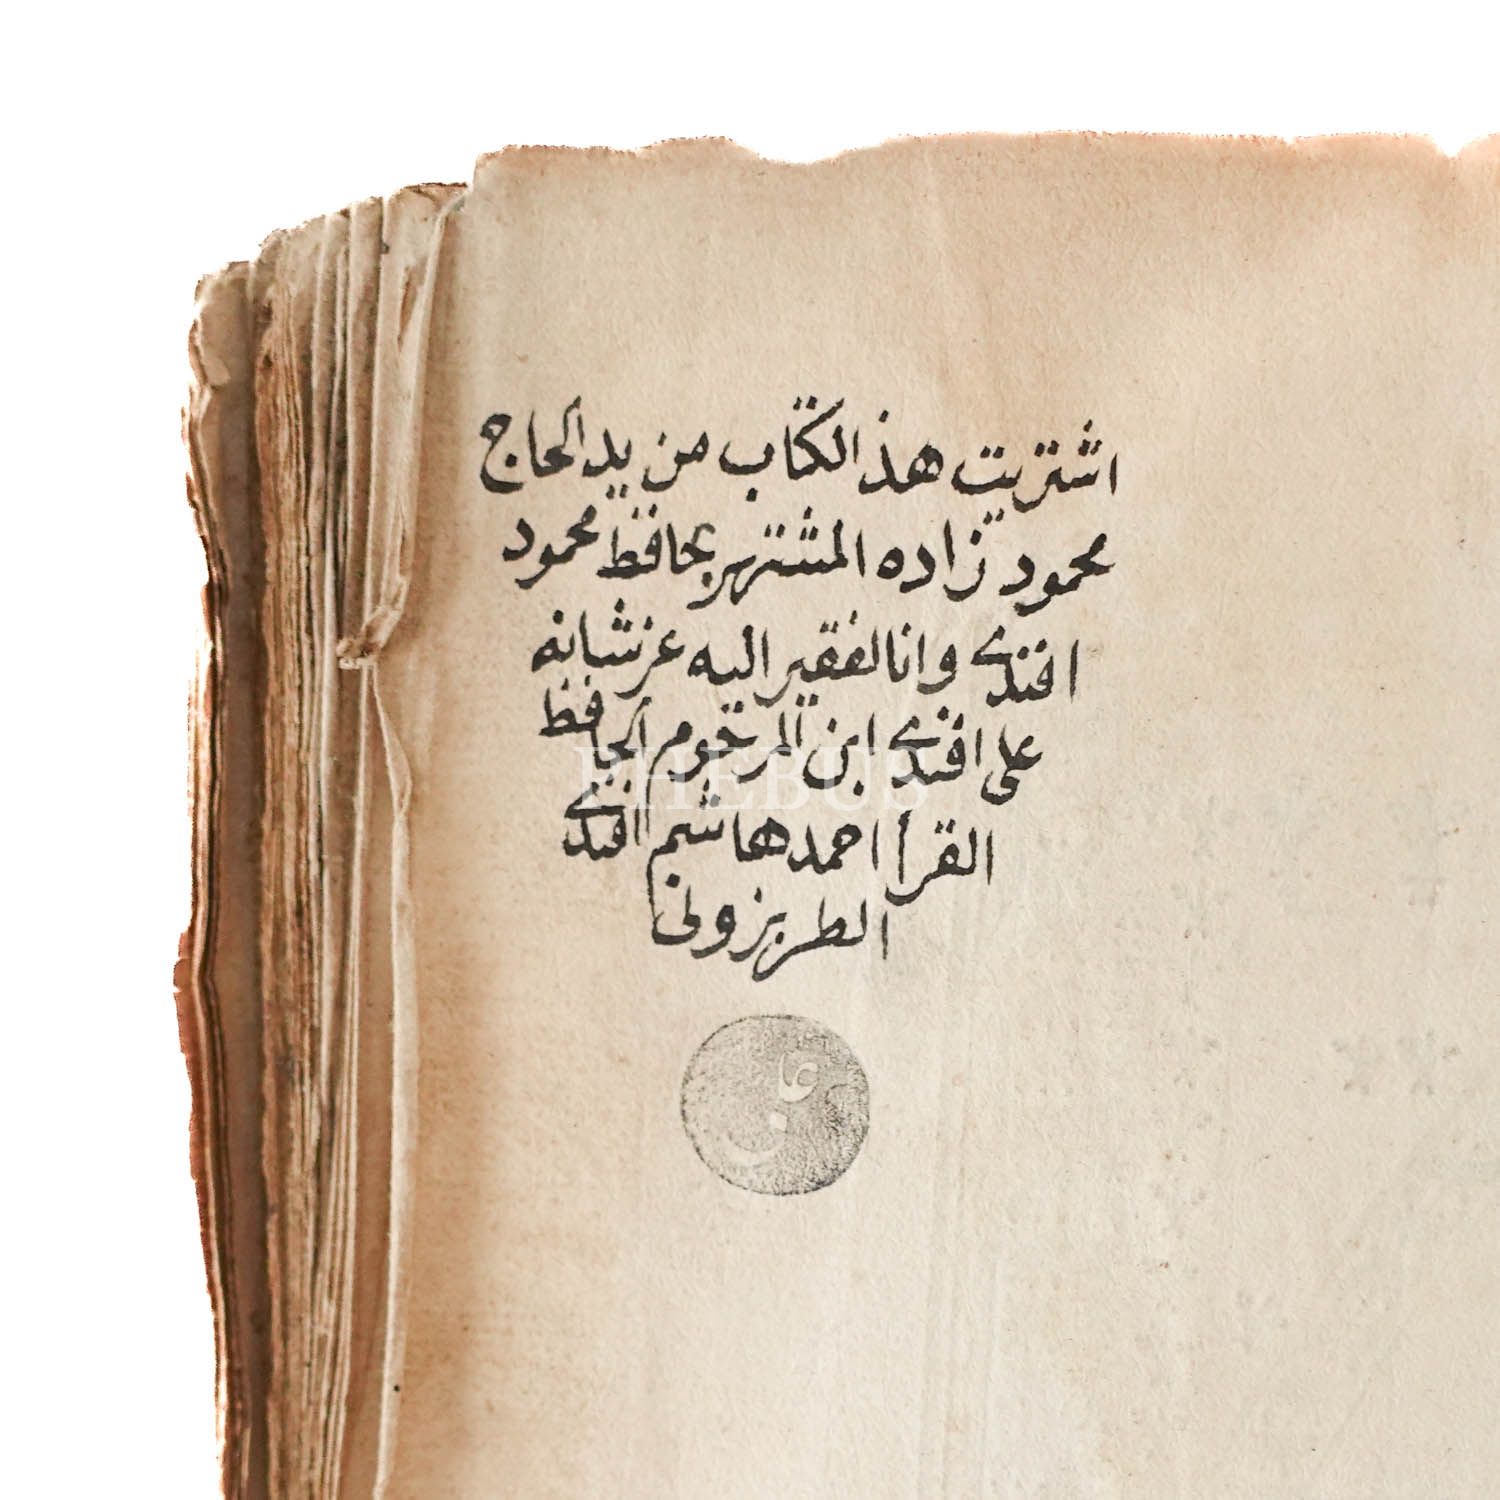 اشتريت هذ الكتاب من يد الحاج
محمود زاده المشتهر بحافظ محمود
افندى وانا لفقير اليه عز شانه
على افندى ابن المرحوم الحافظ
PHEBUS
القرأ احمد هاشم افندى
الطربزونى